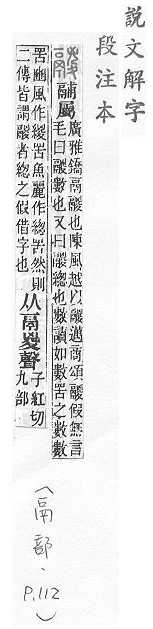 說文解字
段注本
鬷 鬴屬 廣雅鬲鬷也陳風越以鬷邁商頌鬷假無言
毛曰鬷數也又曰鬷總也數讀如數罟之數數
罟豳風作緵罟魚麗作緫罟然則
二傳皆謂鬷者總之假借字也
从鬲㚇聲 子紅切
九部
(鬲部、P.112)